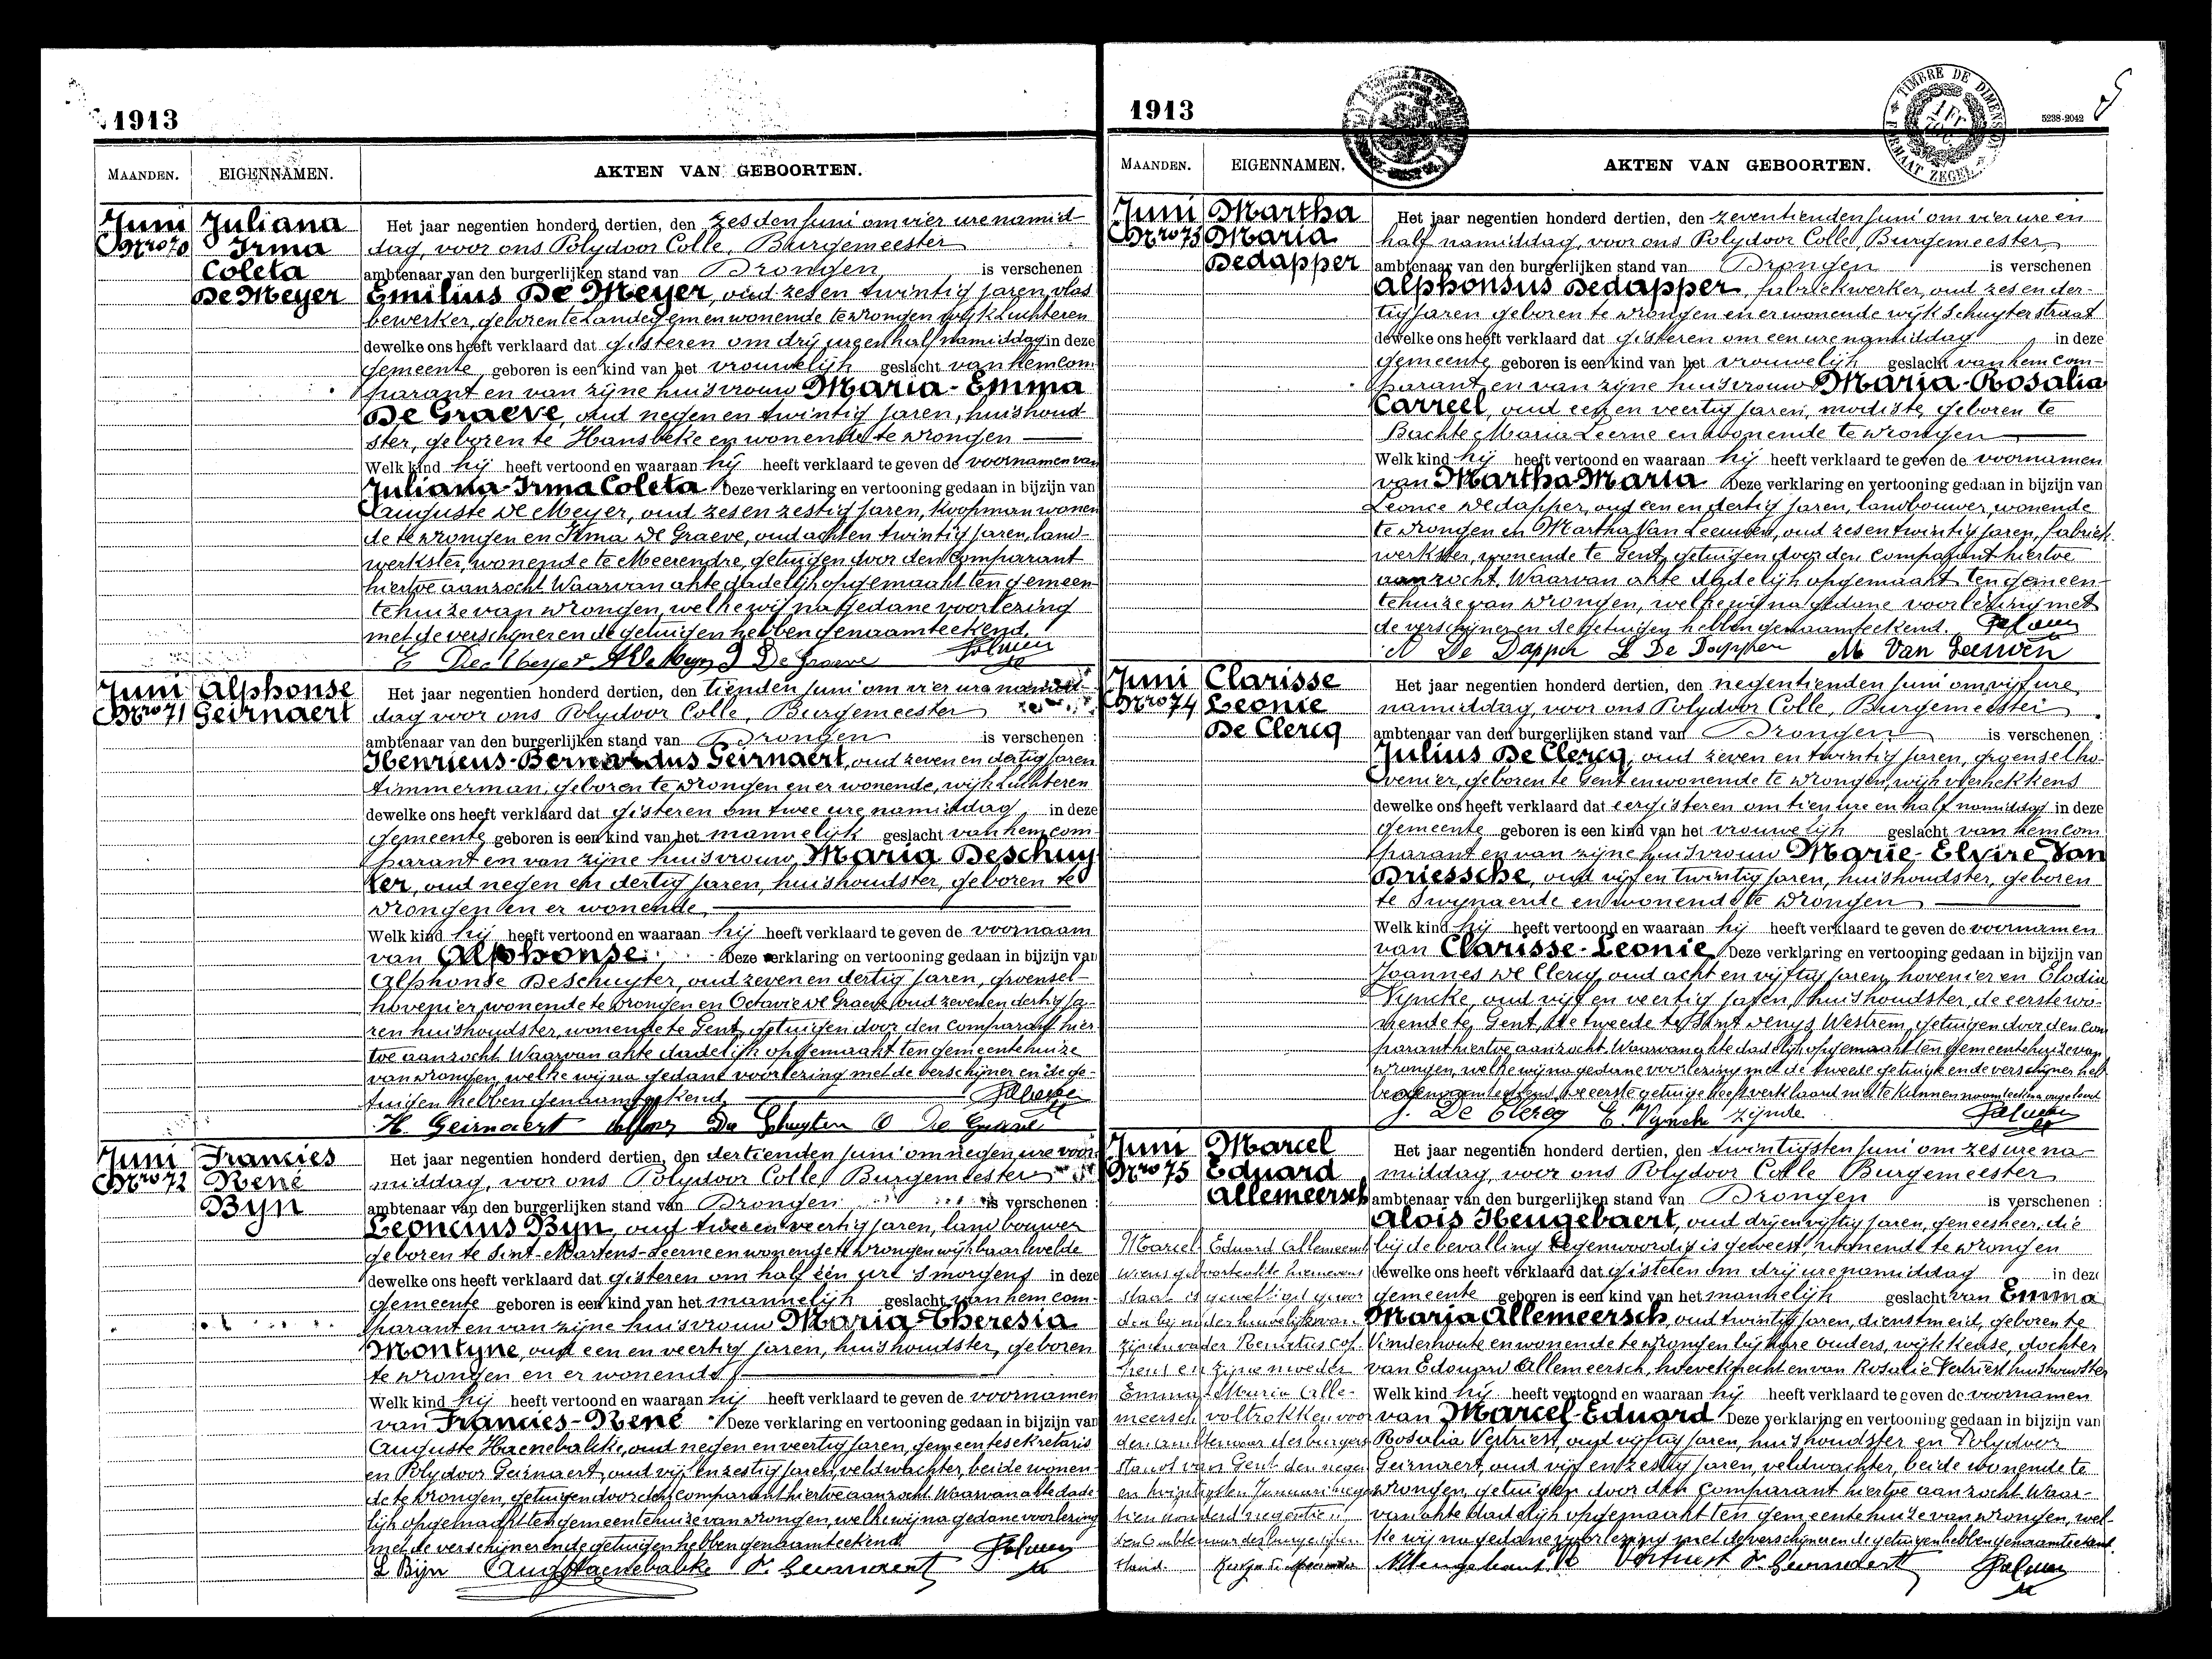 1913
MAANDEN. EIGENNAMEN. AKTEN VAN GEBOORTEN.
Juni
Nro 70
Juliana
Irma
Coleta
De Meyer
Het jaar negentien honderd dertien, den zesden Juni om vier ure namid-
dag, voor ons Polydoor Colle, Burgemeester
ambtenaar van den burgerlijken stand van Drongen is verschenen :
Emilius De Meyer, oud zes en twintig jaren, vlas
bewerker, geboren te Landegem en wonende te Drongen wijk Luchteren
dewelke ons heeft verklaard dat gisteren om drij uren half namiddag in deze
gemeente geboren is een kind van het vrouwelijk geslacht van hem com-
parant en van zijne huisvrouw Maria-Emma
De Graeve, oud negen en twintig jaren, huishoud-
ster, geboren te Hansbeke en wonende te Drongen
Welk kind hij heeft vertoond en waaraan hij heeft verklaard te geven de voornamen van
Juliana-Irma Coleta Deze verklaring en vertooning gedaan in bijzijn van
Auguste De Meyer, oud zes en zestig jaren, koopman wonen
de te Drongen en Irma De Graeve, oud acht en twintig jaren, land-
werkster, wonende te Meerendre, getuigen door den Comparant
hiertoe aanzocht Waarvan akte dadelijk opgemaakt ten gemeen-
tehuize van Drongen, welke wij na gedane voorlezing
met de verschijner en de getuigen hebben genaamteekend.
E De Meyer A De Meyer I De Graeve
Juni
Nro 71
Alphonse
Geirnaert
Het jaar negentien honderd dertien, den tienden Juni om vier ure namid-
dag voor ons Polydoor Colle, Burgemeester
ambtenaar van den burgerlijken stand van Drongen is verschenen :
Henricus-Bernardus Geirnaert, oud zeven en dertig jaren
timmerman, geboren te Drongen en er wonende, wijk Luchteren
dewelke ons heeft verklaard dat gisteren om twee ure namiddag in deze
gemeente geboren is een kind van het mannelijk geslacht van hem com-
parant en van zijne huisvrouw Maria Deschuy
ter, oud negen en dertig jaren, huishoudster, geboren te
Drongen en er wonende
Welk kind hij heeft vertoond en waaraan hij heeft verklaard te geven de voornaam
van Alphonse. Deze verklaring en vertooning gedaan in bijzijn van
Alphonse Deschuyter, oud zeven en dertig jaren, groensel-
hovenier, wonende te Drongen en Octavie De Graeve oud zeven en dertig ja-
ren huishoudster, wonende te Gent, getuigen door den Comparant hier-
toe aanzocht Waarvan akte dadelijk opgemaakt ten gemeentehuize
van Drongen, welke wij na gedane voorlezing met de verschijner en de ge-
tuigen hebben genaamteekend
H. Geirnaert Alfons De Schuyter O De Graeve
Juni
Nro 72
Francies
René
Byn
Het jaar negentien honderd dertien, den dertienden Juni om negen ure voor-
middag, voor ons Polydoor Colle, Burgemeester
ambtenaar van den burgerlijken stand van Drongen is verschenen :
Leoncius Byn, oud twee en veertig jaren, landbouwer
geboren te Sint-Martens-Leerne en wonende te Drongen wijk baarlevelde
dewelke ons heeft verklaard dat gisteren om half één ure 's morgens in deze
gemeente geboren is een kind van het mannelijk geslacht van hem com-
parant en van zijne huisvrouw Maria-Theresia
Montyne, oud een en veertig jaren, huishoudster, geboren
te Drongen en er wonende
Welk kind hij heeft vertoond en waaraan hij heeft verklaard te geven de voornamen
van Francies-René Deze verklaring en vertooning gedaan in bijzijn van
Auguste Haenebalcke, oud negen en veertig jaren, gemeentesekretaris
en Polydoor Geirnaert, oud vijf en zestig jaren, veldwachter, beide wonen-
de te Drongen, getuigen door den Comparant hiertoe aanzocht Waarvan akte dade-
lijk opgemaakt ten gemeentehuize van Drongen, welke wij na gedane voorlezing
met de verschijner en de getuigen hebben genaamteekend
L Bijn Aug Haenebalcke P. Geirnaert
1913
TIMBRE DE DIMENSION
1 Fr
FORMAAT ZEGEL
5238-2042
MAANDEN. EIGENNAMEN. AKTEN VAN GEBOORTEN.
Juni
Nro 73
Martha
Maria
Dedapper
Het jaar negentien honderd dertien, den zeventienden Juni om vier ure en
half namiddag, voor ons Polydoor Colle, Burgemeester
ambtenaar van den burgerlijken stand van Drongen is verschenen
Alphonsus Dedapper, fabriekwerker, oud zes en der-
tig jaren geboren te Drongen en er wonende wijk Schuyterstraat
dewelke ons heeft verklaard dat gisteren om een ure namiddag in deze
gemeente geboren is een kind van het vrouwelijk geslacht van hem com-
parant en van zijne huisvrouw Maria-Rosalia
Carreel, oud een en veertig jaren, modiste, geboren te
Bachte Maria Leerne en wonende te Drongen
Welk kind hij heeft vertoond en waaraan hij heeft verklaard te geven de voornamen
van Martha-Maria Deze verklaring en vertooning gedaan in bijzijn van
Leonce Dedapper, oud een en dertig jaren, landbouwer, wonende
te Drongen en Martha Van Leeuwen, oud zes en twintig jaren, fabriek-
werkster, wonende te Gent, getuigen door den Comparant hiertoe
aanzocht. Waarvan akte dadelijk opgemaakt ten gemeen-
tehuize van Drongen, welke wij na gedane voorlezing met
de verschijner en de getuigen hebben genaamteekend.
A De Dapper L De Dapper M Van Leeuwen
Juni
Nro 74
Clarisse
Leonie
De Clercq
Het jaar negentien honderd dertien, den negentienden Juni om vijf ure
namiddag, voor ons Polydoor Colle, Burgemeester
ambtenaar van den burgerlijken stand van Drongen is verschenen :
Julius De Clercq, oud zeven en twintig jaren, groenselho-
venier, geboren te Gent en wonende te Drongen, wijk
dewelke ons heeft verklaard dat eergisteren om tien ure en half namiddag in deze
gemeente geboren is een kind van het vrouwelijk geslacht van hem com
parant en van zijne huisvrouw Marie-Elvire Van
Driessche, oud vijf en twintig jaren, huishoudster, geboren
te Swynaerde en wonende te Drongen
Welk kind hij heeft vertoond en waaraan hij heeft verklaard te geven de voornamen
van Clarisse-Leonie Deze verklaring en vertooning gedaan in bijzijn van
Joannes De Clercq, oud acht en vijftig jaren, hovenier en Elodia
Vyncke, oud vijf en veertig jaren, huishoudster, de eerste wo-
nende te Gent, de tweede te Sint Denys Westrem, getuigen door den Com
parant hiertoe aanzocht. Waarvan akte dadelijk opgemaakt ten gemeentehuize van
Drongen, welke wij na gedane voorlezing met de tweede getuige en de verschijner heb
ben genaamteekend, de eerste getuige heeft verklaard niet te kunnen naamteekenen ongeleerd
J. De Clercq E. Vyncke zijnde
Juni
Nro 75
Marcel
Eduard
Allemeersch
Marcel Eduard Allemeersch
wiens geboorteakte hiernevens
staat is gewettigd gewor
den bij het huwelijk van
zijnen vader Remitus
en zijne moeder
Emma Maria Alle-
meersch voltrokken voor
den ambtenaar des burgers
stand van Gent den negen
en twintigsten Januari neg
tien honderd negentien
den Ambtenaar des burgerlijken
stand.
Het jaar negentien honderd dertien, den twintigsten Juni om zes ure na-
middag, voor ons Polydoor Colle Burgemeester
ambtenaar van den burgerlijken stand van Drongen is verschenen :
Alois Heugebaert, oud drij en vijftig jaren, geneesheer, die
bij de bevalling tegenwoordig is geweest, wonende te Drongen
dewelke ons heeft verklaard dat gisteren om drij ure namiddag in deze
gemeente geboren is een kind van het mannelijk geslacht van Emma
Maria Allemeersch, oud twintig jaren, dienstmeid, geboren te
Vinderhoute en wonende te Drongen bij hare ouders, wijk Keuse, dochter
van Edouard Allemeersch, hoeveknecht en van Rosalie Vertriest huishoudster
Welk kind hij heeft vertoond en waaraan hij heeft verklaard te geven de voornamen
van Marcel-Eduard Deze verklaring en vertooning gedaan in bijzijn van
Rosalia Vertriest, oud vijftig jaren, huishoudster en Polydoor
Geirnaert, oud vijf en zestig jaren, veldwachter, beide wonende te
Drongen, getuigen door den Comparant hiertoe aanzocht Waar-
van akte dadelijk opgemaakt ten gemeentehuize van Drongen, wel-
ke wij na gedane voorlezing met de verschijner en de getuigen hebben genaamteekend.
A Heugebaert R Vertriest P. Geirnaert